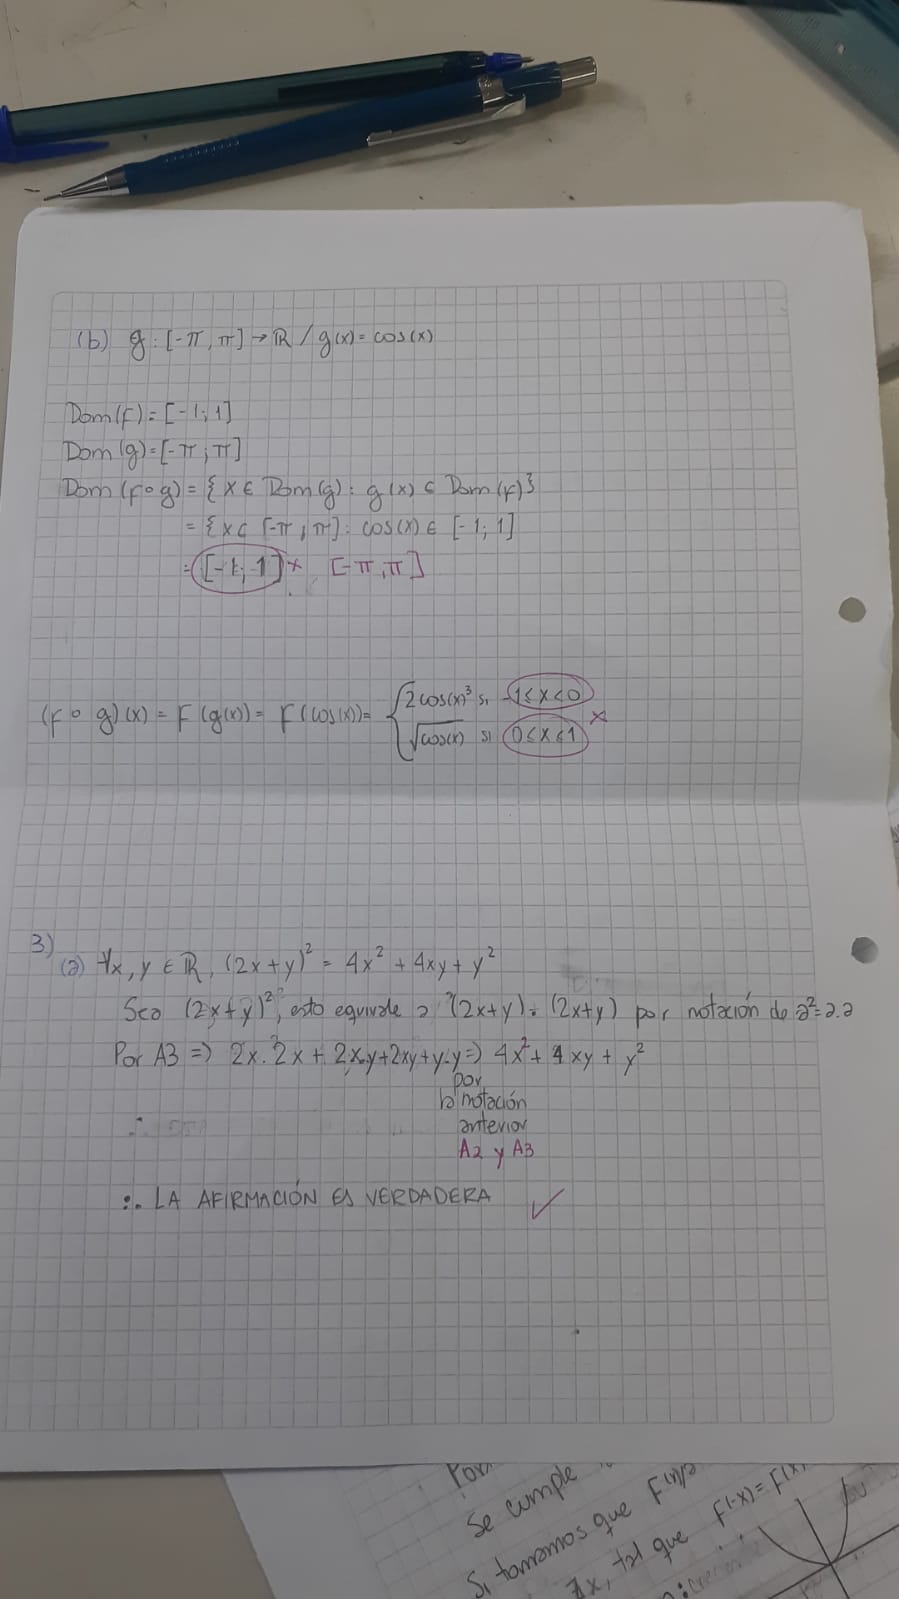 (b) g: [-π, π] → R / g(x) = cos(x)
Dom(f) = [-1; 1]
Dom(g) = [-π; π]
Dom(f∘g) = {x ∈ Dom(g): g(x) ∈ Dom(f)}
= {x ∈ [-π; π]: cos(x) ∈ [-1; 1]
= [-1; 1] x [-π, π]
(f ∘ g)(x) = f(g(x)) = f(cos(x)) = { 2cos(x)³ si -1 ≤ x < 0
√cos(x) si 0 ≤ x ≤ 1 x
3)
(a) ∀x, y ∈ R, (2x+y)² = 4x² + 4xy + y²
Sea (2x+y)², esto equivale a (2x+y) · (2x+y) por notación de a²=a.a
Por A3 => 2x.2x + 2x.y+2xy+y.y => 4x² + 4xy + y²
por
la notación
anterior
A2 y A3
∴ LA AFIRMACIÓN ES VERDADERA ✓
Se cumple
Si tomamos que
tal que f(-x) = f(x)